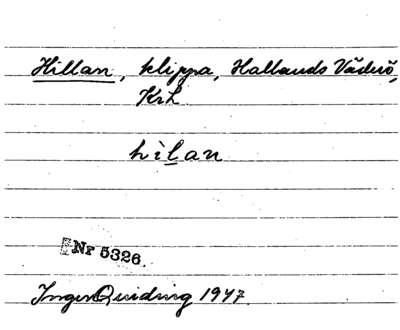 Hillan, klippa, Hallands Väderö,
KrL
hìlan
Nr 5326.
Inger Quiding 1947.